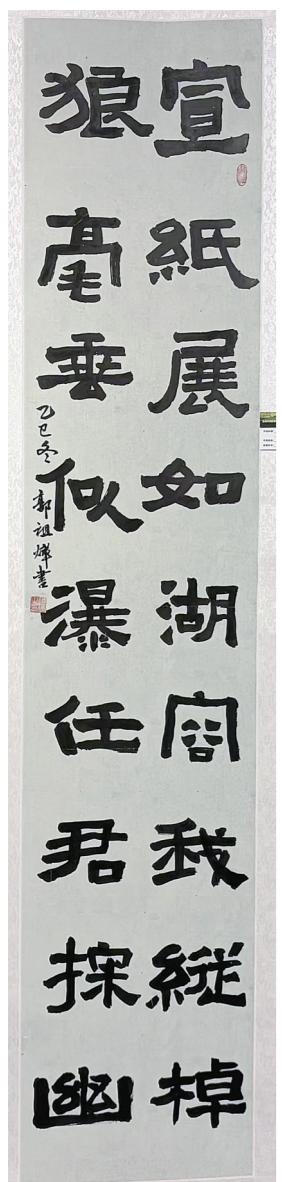 宣紙展如湖容我縱棹
狼毫垂似瀑任君探幽
乙巳冬郭祖烽書